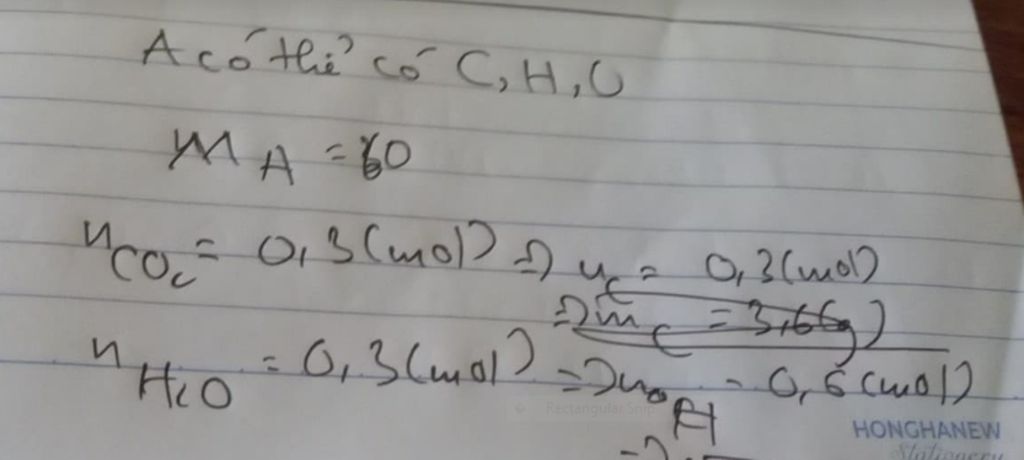 A có thể có C, H, O
M A = 60
n CO2 = 0,3 (mol) => n C = 0,3 (mol)
=> m C = 3,6 g)
n H2O = 0,3 (mol) => n H = 0,6 (mol)
Rectangular Snip
HONGHANEW
Stationery
=>